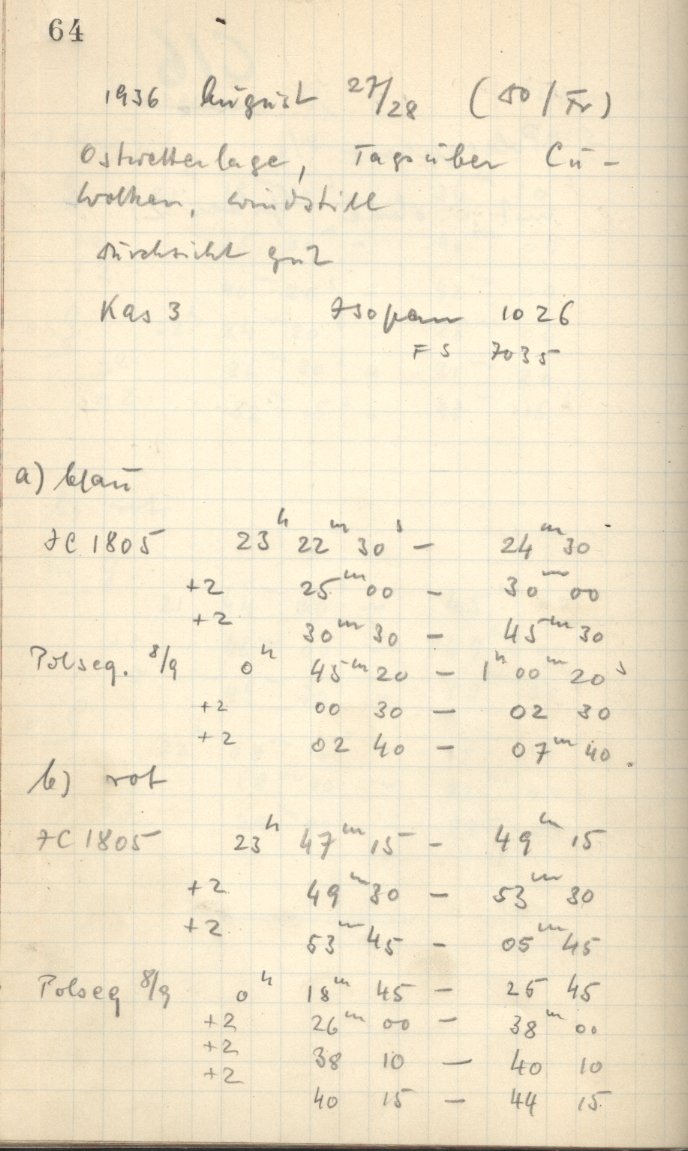 64
1936 August 27/28 (Do/Fr)
Ostwetterlage, Tagsüber Cu-
Wolken, windstill
Durchsicht gut
Kas 3 Isopan 1026
FS 7035
a) blau
IC 1805 23h 22m 30s – 24m 30
+2 25m 00 – 30m 00
+2 30m 30 – 45m 30
Polseq. 8/9 0h 45m 20 – 1h 00m 20s
+2 00 30 – 02 30
+2 02 40 – 07m 40.
b) rot
IC 1805 23h 47m 15 – 49m 15
+2 49m 30 – 53m 30
+2 53m 45 – 05m 45
Polseq 8/9 0h 18m 45 – 25 45
+2 26m 00 – 38m 00
+2 38 10 – 40 10
+2 40 15 – 44 15